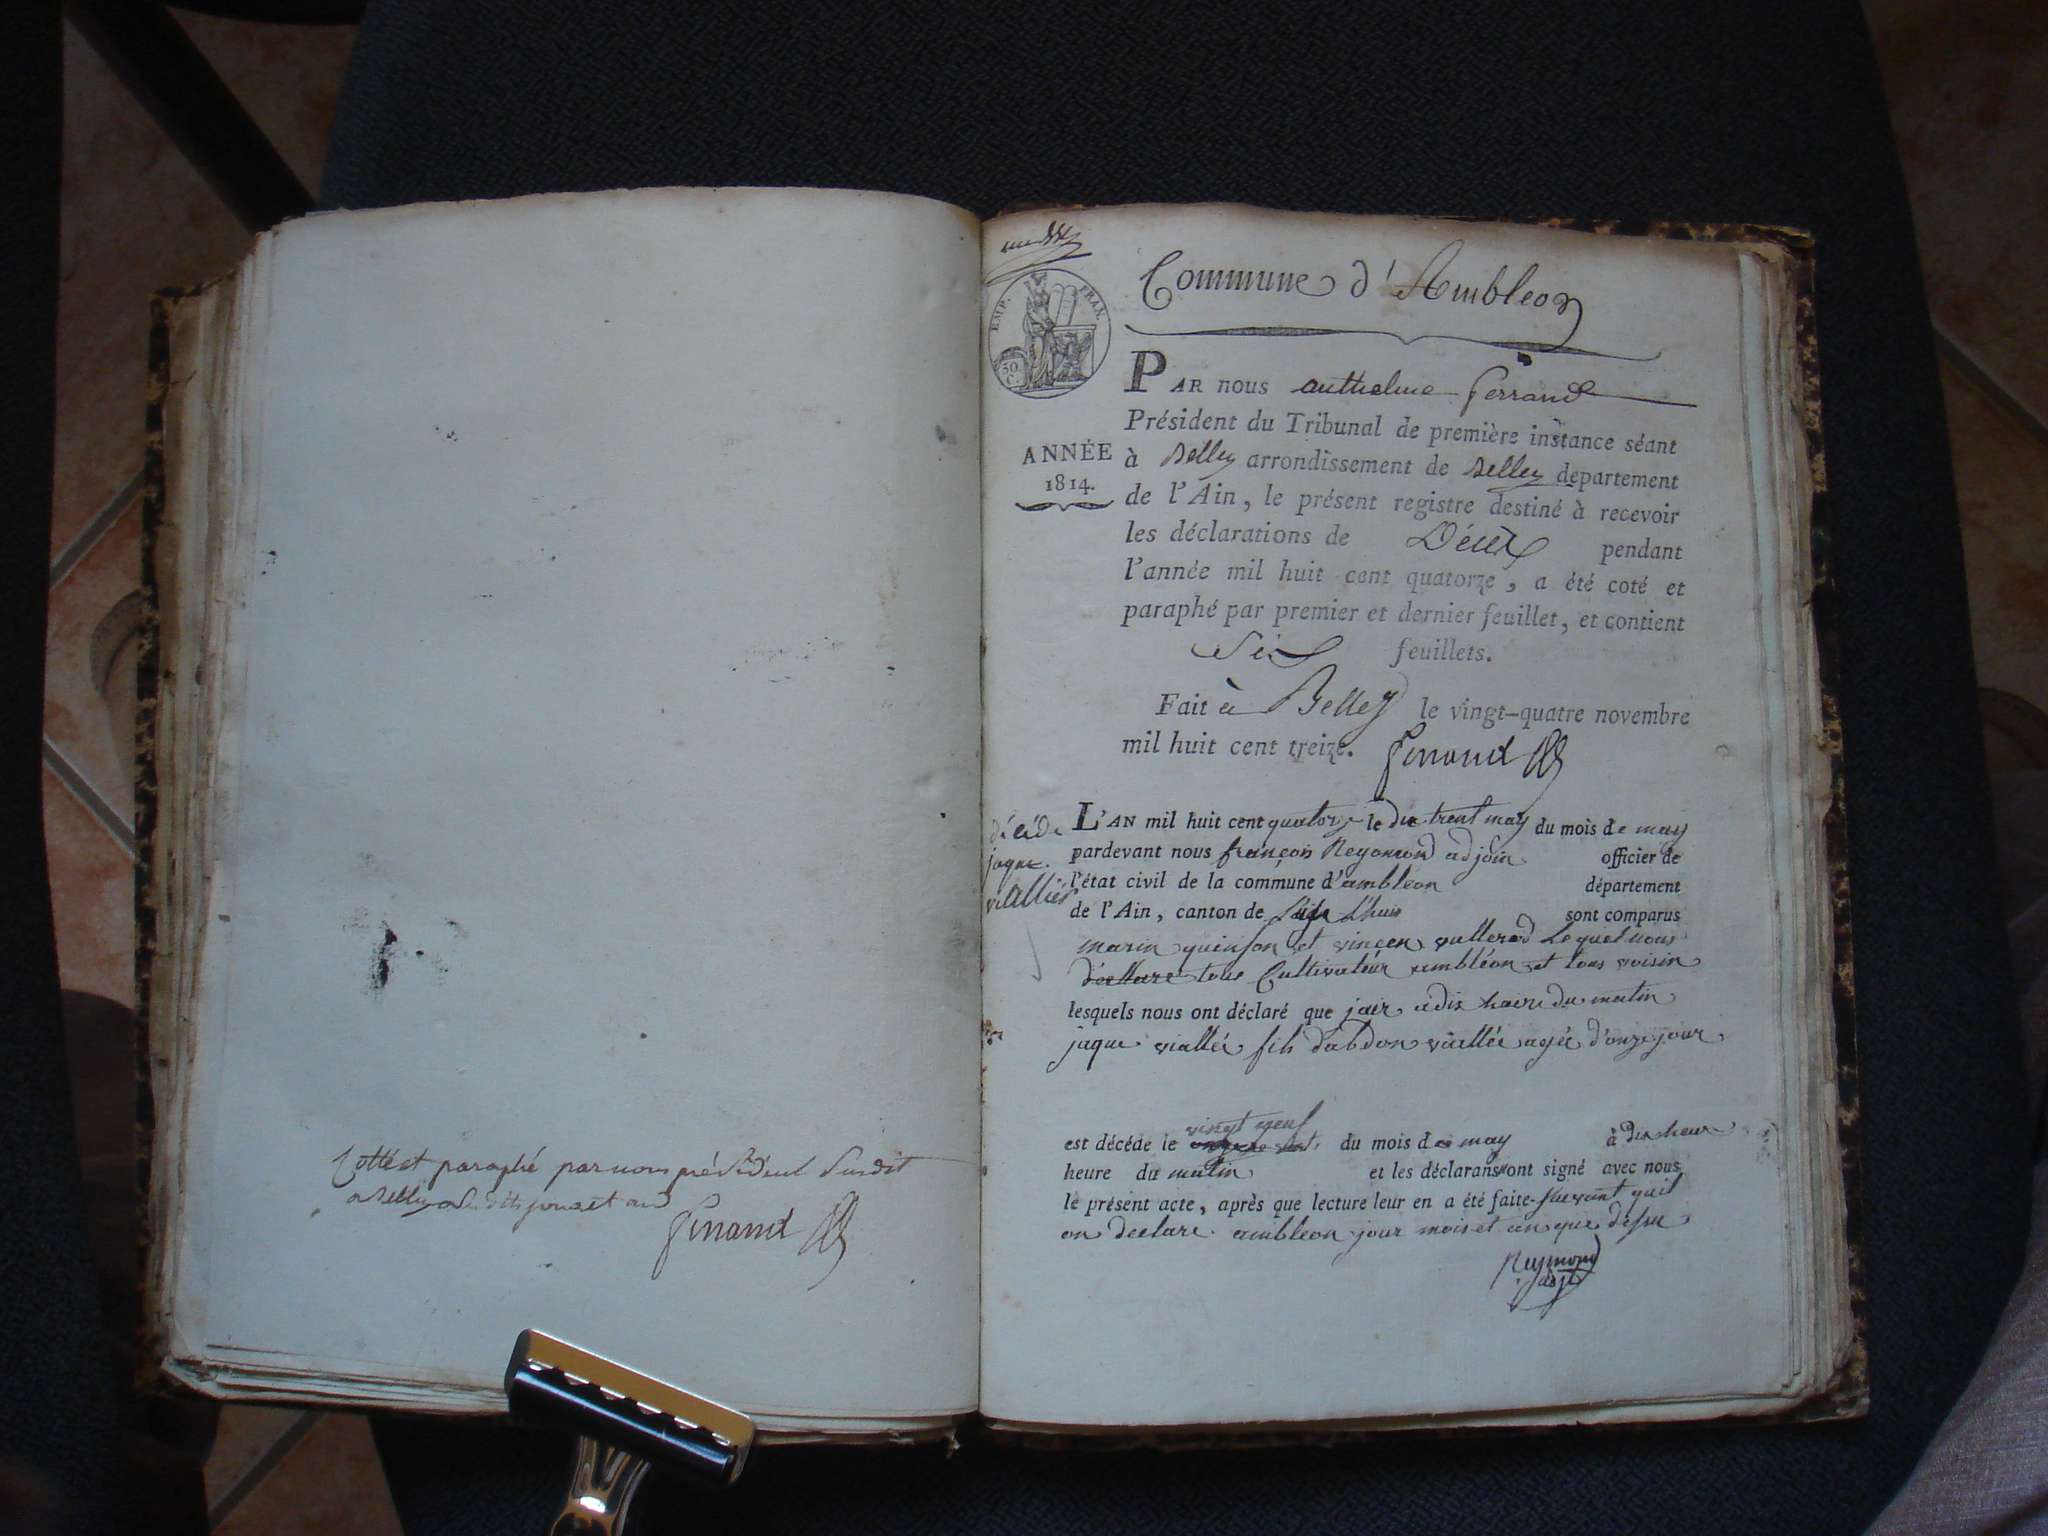 Cotté et paraphé par nous président susdit
a Belley
Ferrand
EMP. FRAN.
50
C.
Commune d'Ambleon
ANNÉE
1814.
PAR nous anthelme Ferrand
Président du Tribunal de première instance séant
à Belley arrondissement de Belley département
de l'Ain, le présent registre destiné à recevoir
les déclarations de Décès pendant
l'année mil huit cent quatorze, a été coté et
paraphé par premier et dernier feuillet, et contient
Six feuillets.
Fait à Belley le vingt-quatre novembre
mil huit cent treize. Ferrand
décéde
jaque
viallié
L'AN mil huit cent quatorze le die trent may du mois de may
pardevant nous françois Reymond adjoin officier de
l'état civil de la commune d'ambléon département
de l'Ain, canton de L'huis sont comparus
marin quinson et vincen vullerod Lequel nous
déclare tous Cultivateur ambléon et tous voisin
lesquels nous ont déclaré que jair a dis haire du matin
jaque viallié fils d'abdon viallié agée d'onze jour
est décéde le vingt neuf du mois de may à dix heur
heure du matin et les déclarans ont signé avec nous
le présent acte, après que lecture leur en a été faite suivant quil
on declare ambleon jour mois et an que desu
Reymond
adjt